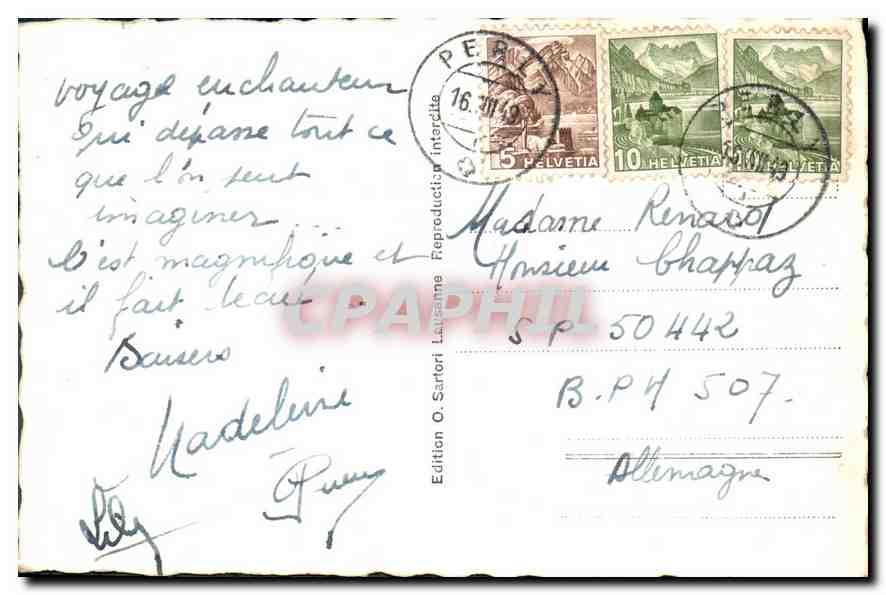 voyage enchanteur
qui dépasse tout ce
que l'on peut
imaginer...
C'est magnifique et
il fait beau
Baisers
Madeleine
Lily
PERLY
16. VII 49
5 HELVETIA
10 HELVETIA
HELVETIA
Edition O. Sartori Lausanne Reproduction interdite
Madame Renaud
Monsieur Chappaz
SP 50442
B.P.M 507.
Allemagne
CPAPHIL